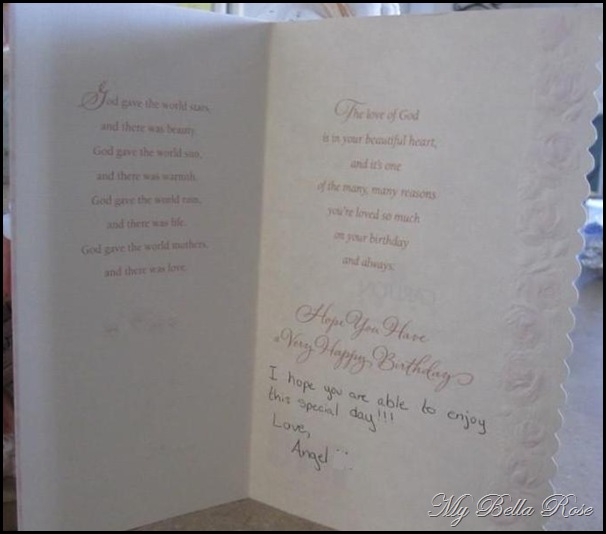 God gave the world stars,
and there was beauty.
God gave the world sun,
and there was warmth.
God gave the world rain,
and there was life.
God gave the world mothers,
and there was love.
The love of God
is in your beautiful heart,
and it's one
of the many, many reasons
you're loved so much
on your birthday
and always.
Hope You Have
a Very Happy Birthday
I hope you are able to enjoy
this special day!!!
Love,
Angel
My Bella Rose